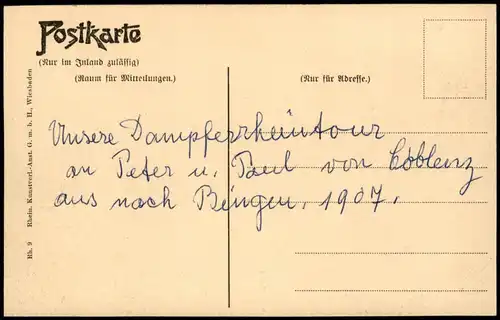 Postkarte
(Nur im Inland zulässig)
(Raum für Mitteilungen.)
(Nur für Adresse.)
Unsere Dampferrheintour
an Peter u. Paul von Coblenz
aus nach Bingen. 1907.
Rh. 9 Rhein. Kunstverl.-Anst. G. m. b. H., Wiesbaden